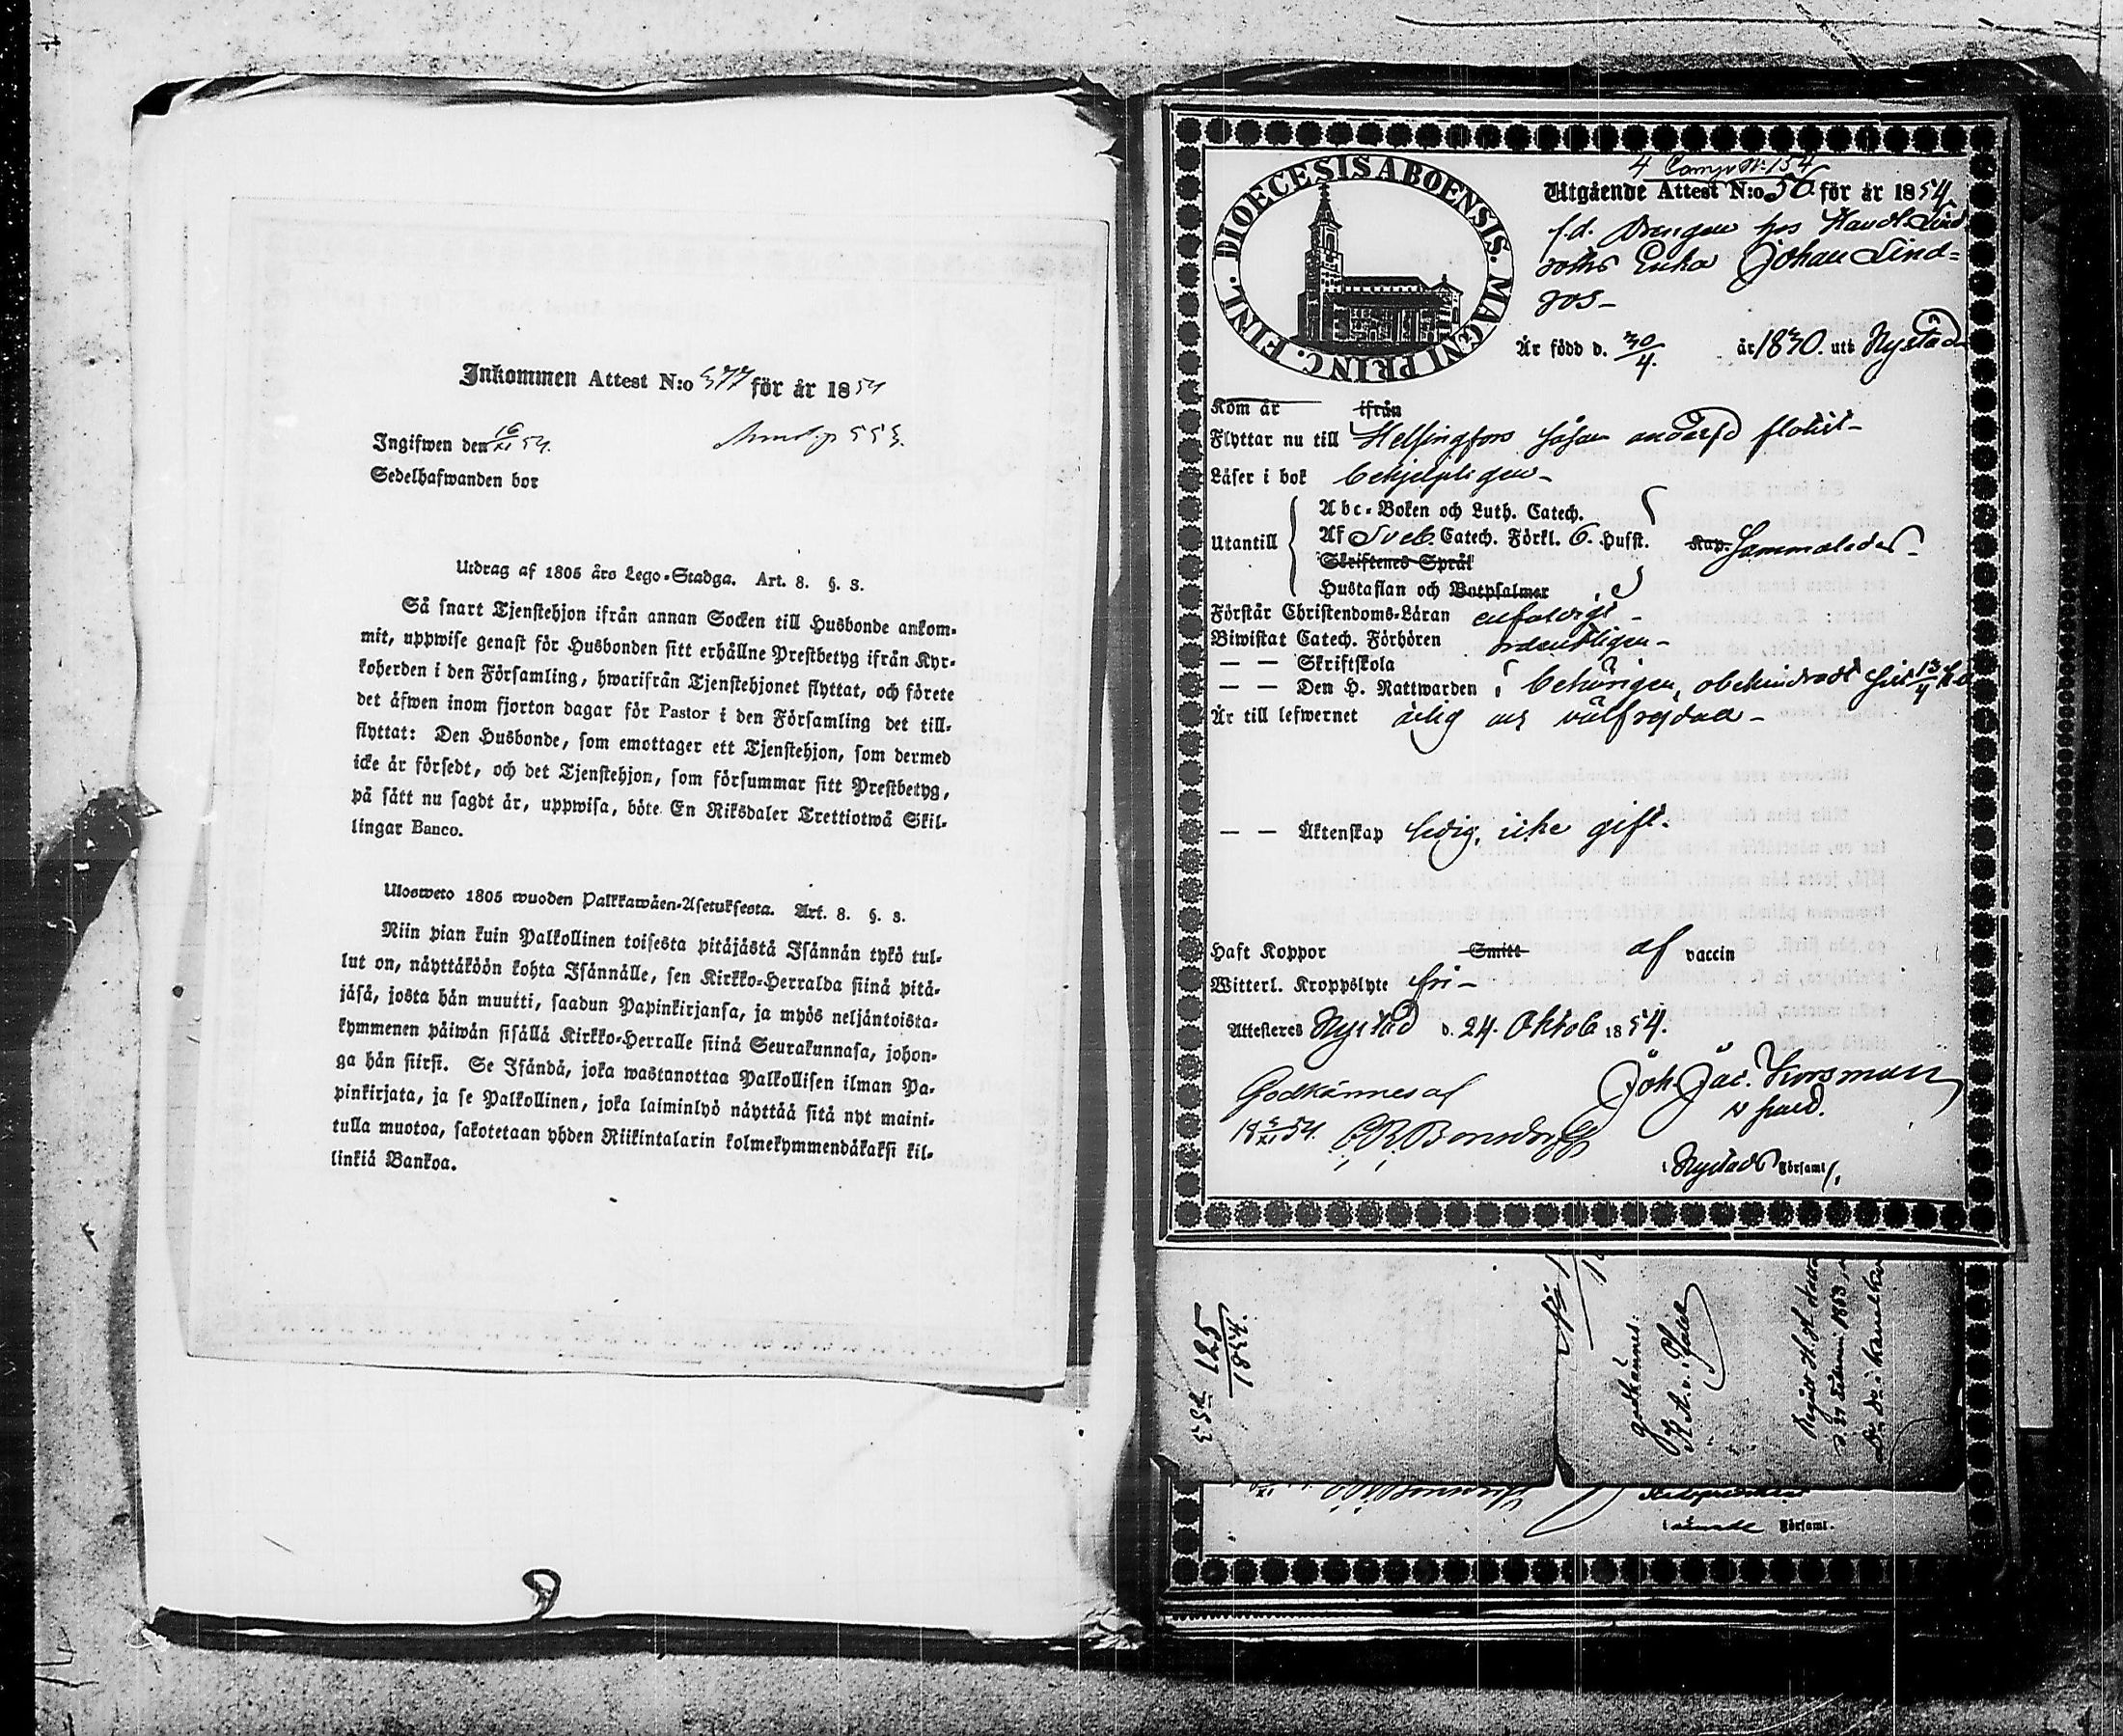 Inkommen Attest N:o 577 för år 1854
Ingifwen den 16/XI 54.
553.
Sedelhafwanden bor
Utdrag af 1805 års Lego-Stadga. Art. 8. §. 3.
Så snart Tjenstehjon ifrån annan Socken till Husbonde ankom-
mit, uppwise genast för Husbonden sitt erhållne Prestbetyg ifrån Kyr-
koherden i den Församling, hwarifrån Tjenstehjonet flyttat, och förete
det äfwen inom fjorton dagar för Pastor i den Församling det till-
flyttat: Den Husbonde, som emottager ett Tjenstehjon, som dermed
icke är försedt, och det Tjenstehjon, som försummar sitt Prestbetyg,
på sätt nu sagdt är, uppwisa, böte En Riksdaler Trettiotwå Skil-
lingar Banco.
Ulosweto 1805 wuoden Palkkawäen-Asetuksesta. Art. 8. §. 3.
Niin pian kuin Palkollinen toisesta pitäjästä Isännän tykö tul-
lut on, näyttäköön kohta Isännälle, sen Kirkko-Herralda siinä pitä-
jäsä, josta hän muutti, saadun Papinkirjansa, ja myös neljäntoista-
kymmenen päiwän sisällä Kirkko-Herralle siinä Seurakunnasa, johon-
ga hän siirsi. Se Isändä, joka wastanottaa Palkollisen ilman Pa-
pinkirjata, ja se Palkollinen, joka laiminlyö näyttää sitä nyt maini-
tulla muotoa, sakotetaan yhden Riikintalarin kolmekymmendäkaksi kil-
linkiä Bankoa.
DIOECESIS ABOENSIS. MAGNI PRINC. FINL.
4 Comp. N: 154
Utgående Attest N:o 50 för år 1854
f.d. Drengen hos Handl. Lind
ros Enka Johan Lind=
ros-
Är född d. 30/4. år 1830. uti Nystad
Kom år ifrån
Flyttar nu till Helsingfors flottist-
Läser i bok behjelpligen-
Abc-Boken och Luth. Catech.
Utantill Af Sveb. Catech. Förkl. 6. Hufst. Kap. Sammaledes-
Skriftenes Språk
Hustaflan och Botpsalmer
Förstår Christendoms-Läran enfaldigt-
Biwistat Catech. Förhören ordentligen-
— — Skriftskola
— — Den H. Nattwarden behörigen, obehindradt 13/4
Är till lefwernet ärlig och välfrejdad-
— — Äktenskap ledig, icke gift.
Haft Koppor Smitt af vaccin
Witterl. Kroppslyte fri-
Attesteres Nystad d. 24. Oktob 1854.
Godkännes af Joh. Jac. Korsman
18 54. C. R. Bonsdorff
i Nystads Församl.
553 125/1854.
godkännes:
i Församl.